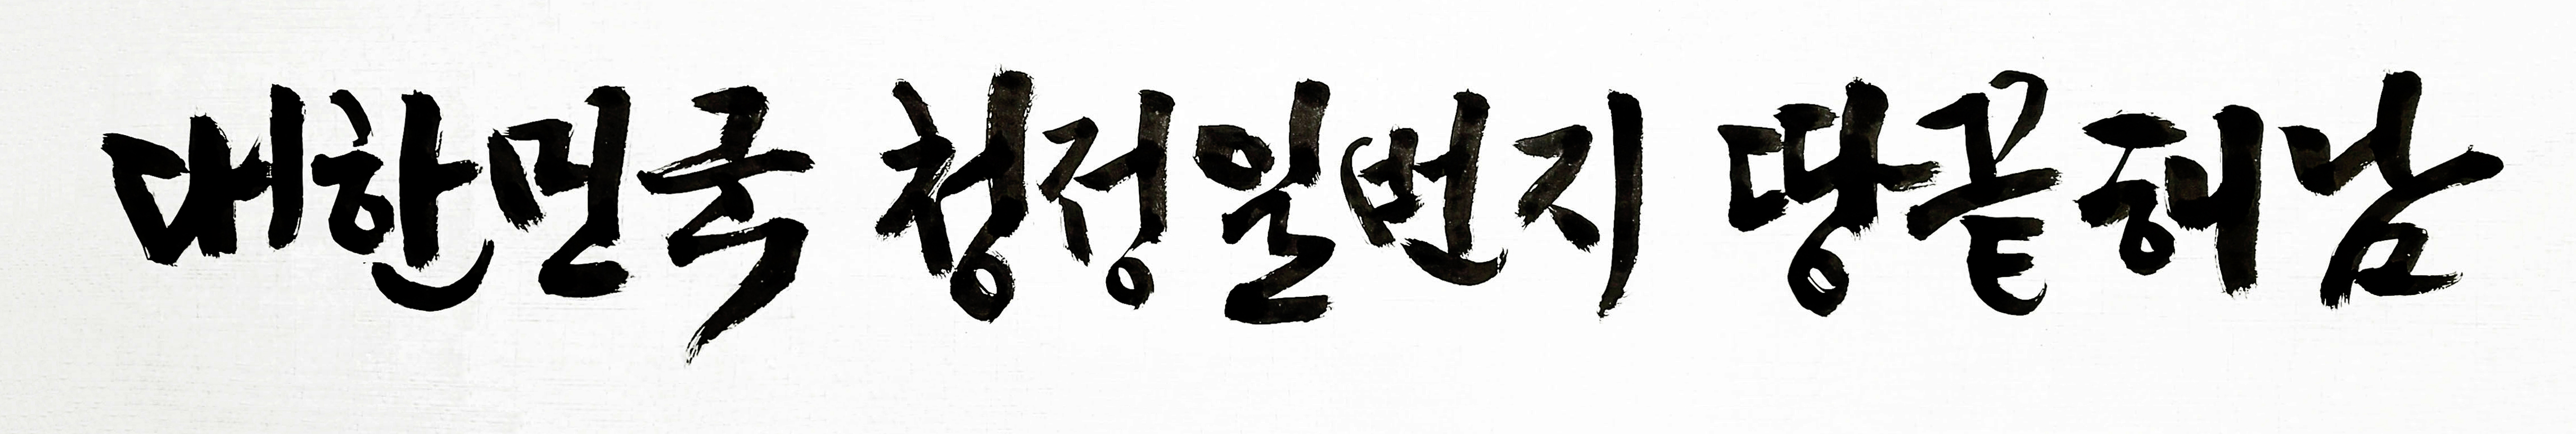 대한민국 청정일번지 땅끝해남